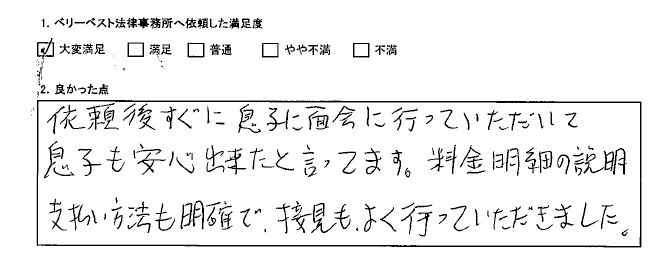 1. ベリーベスト法律事務所へ依頼した満足度
☑ 大変満足 □ 満足 □ 普通 □ やや不満 □ 不満
2. 良かった点
依頼後すぐに息子に面会に行っていただいて
息子も安心出来たと言ってます。料金明細の説明
支払い方法も明確で、接見も、よく行っていただきました。